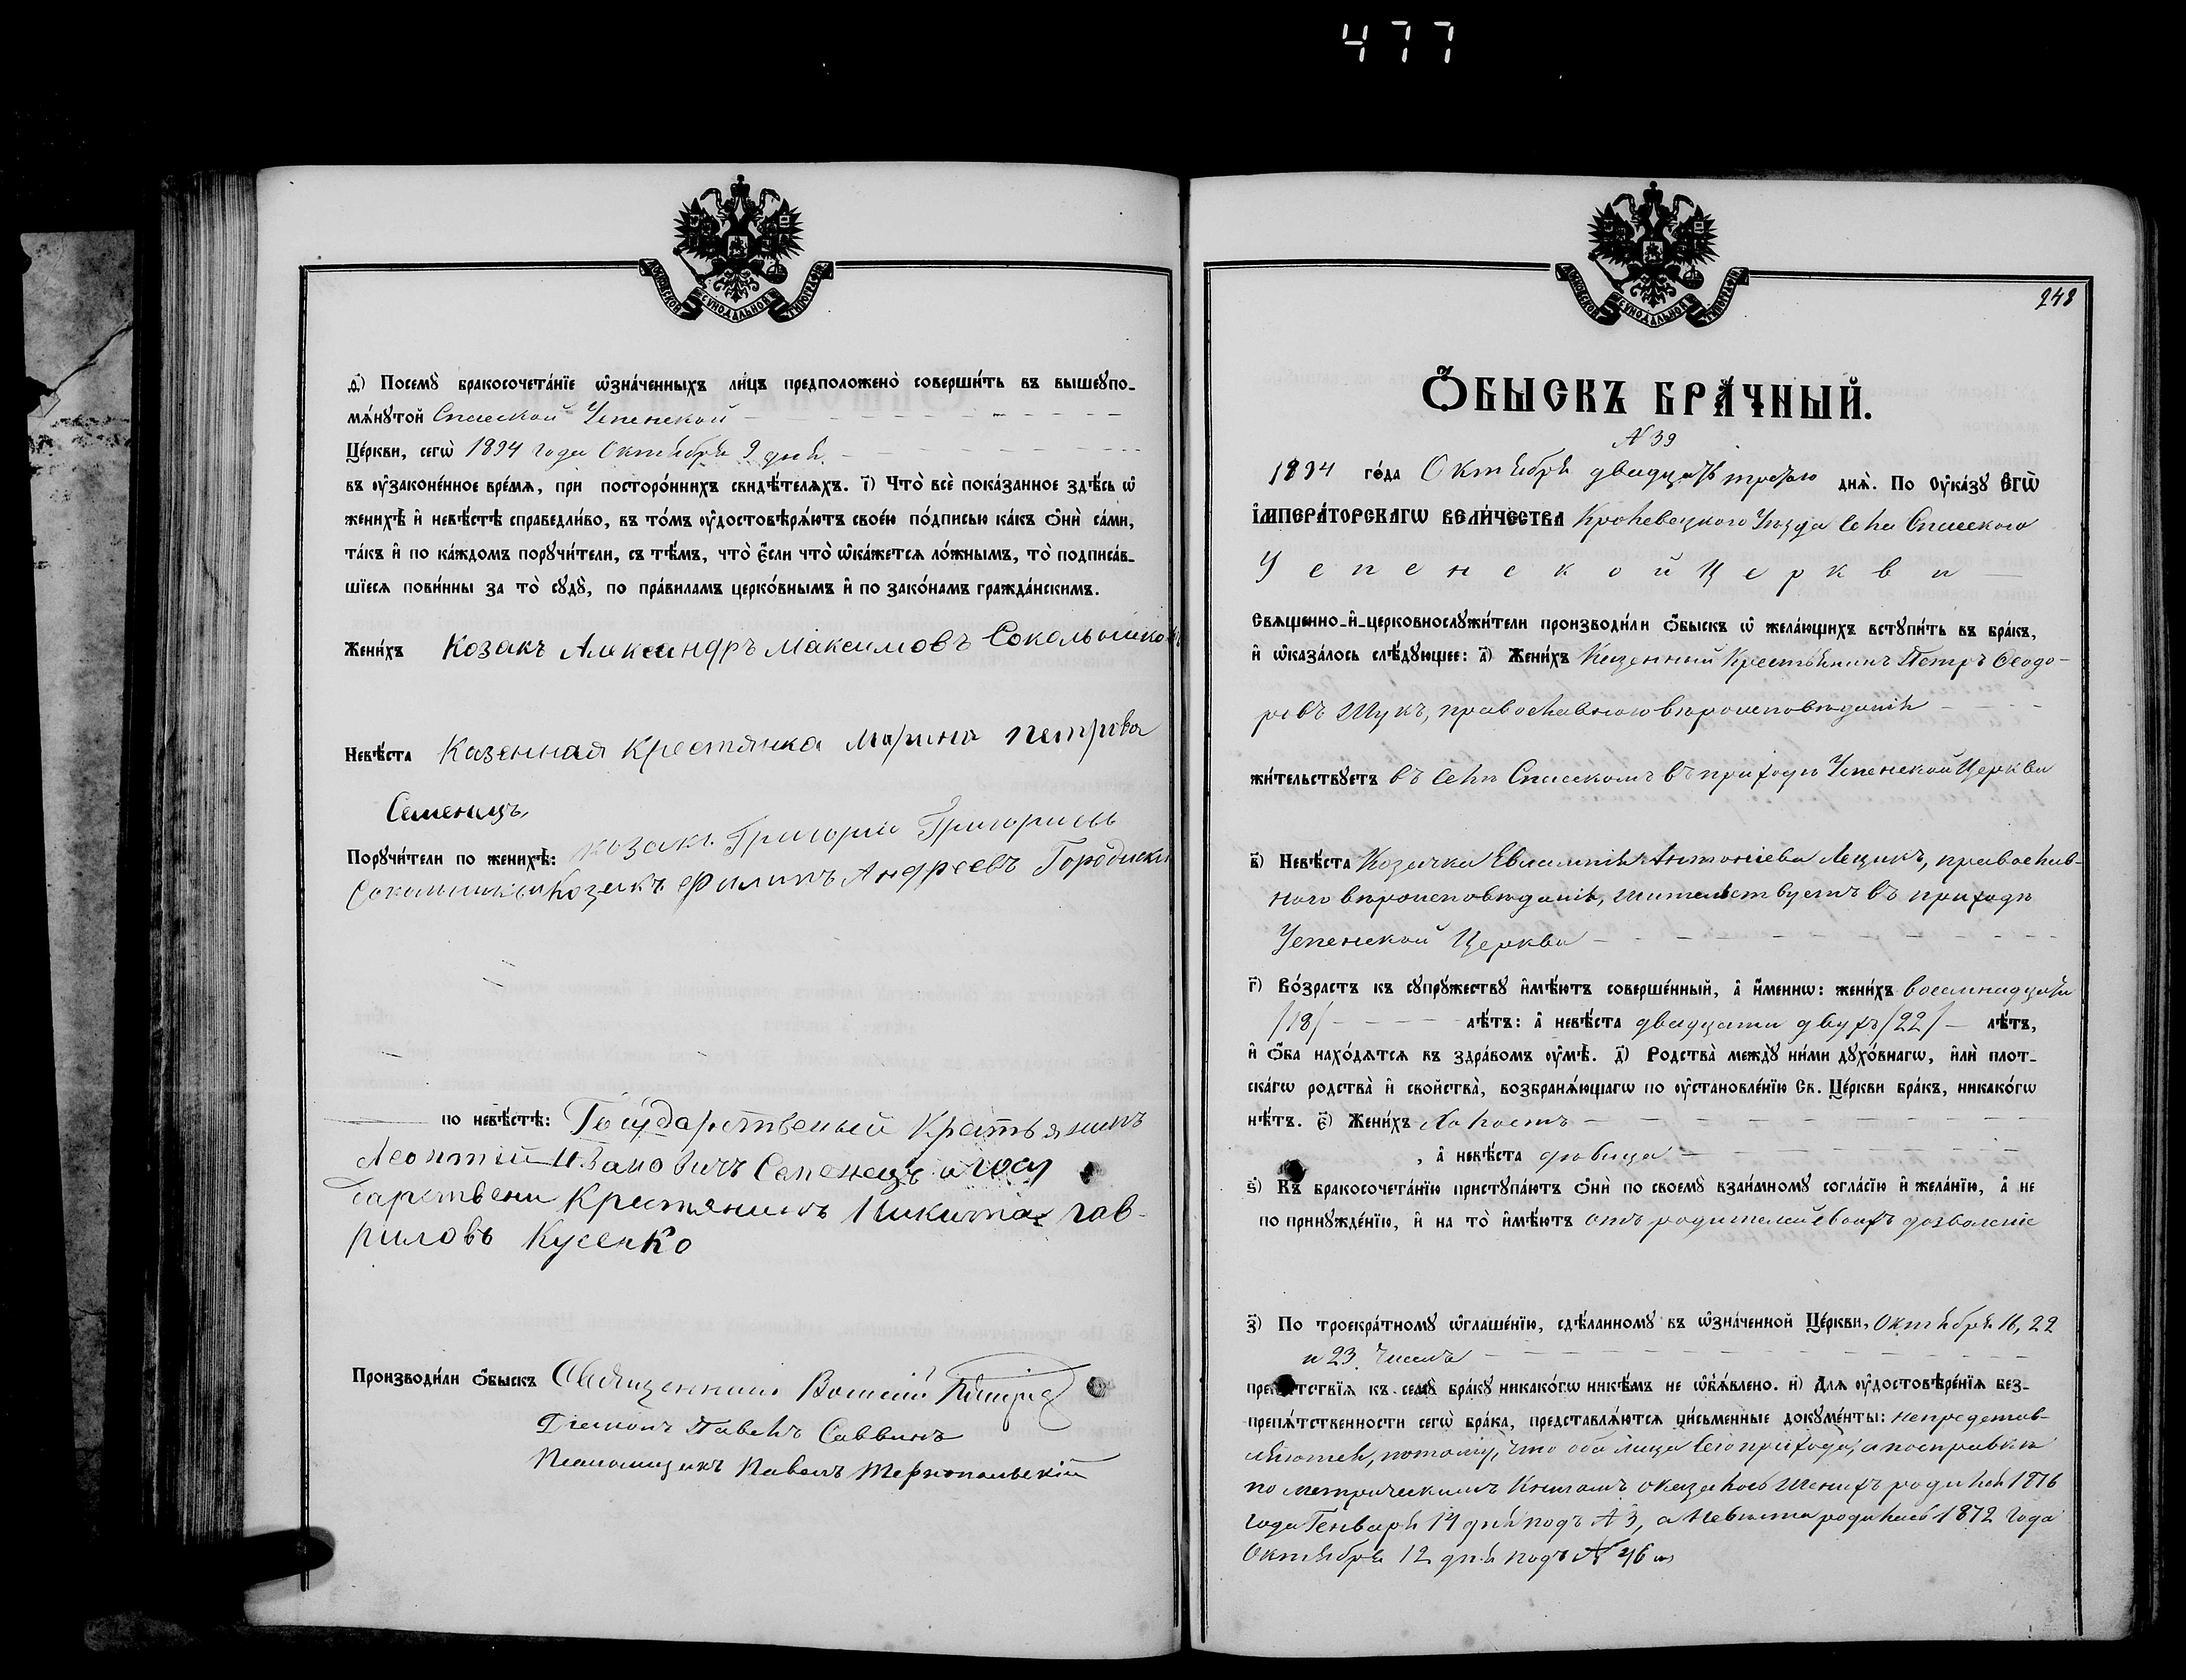 477
МОСКОВСКОЙ СѴНОДАЛЬНОЙ ТИПОГРАФІИ
ѳ҃) Посемꙋ̀ бракосочета́нїе ѡ҆зна́ченныхъ ли́цъ предположено̀ соверши́ть въ вышеꙋпо-
мѧ́нꙋтой Спасской Успенской
Це́ркви, сегѡ̀ 1894 года Октября 9 дня
въ ᲂу҆законе́нное вре́мѧ, при посторо́ннихъ свидѣ́телѧхъ. і҃) Что̀ всѐ пока́занное здѣ́сь ѡ҆
женихѣ̀ и҆ невѣ́стѣ справедли́во, въ то́мъ ᲂу҆достовѣрѧ́ютъ свое́ю по́дписью ка́къ ѻ҆нѝ са́ми,
та́къ и҆ по ка́ждомъ порꙋчи́тели, съ тѣ́мъ, что̀ є҆́сли что̀ ѡ҆ка́жетсѧ ло́жнымъ, то̀ подписа́в-
шїесѧ пови́нны за то̀ сꙋдꙋ̀, по пра́виламъ церко́внымъ и҆ по зако́намъ гражда́нскимъ.
Жени́хъ Козакъ Александръ Максимовъ
Невѣ́ста Казенная Крестянка Марина Петрова
Семенецъ
Порꙋчи́тели по женихѣ̀: козакъ Григорій Григориевъ
Козакъ Филипъ Андреевъ
по невѣ́стѣ: Государственый Крестьянинъ
Леонтій Ивановичъ Семенецъ и госу
дарствени Крестянинъ Никита Гав-
риловъ Кусенко
Производи́ли ѻ҆́быскъ Священникъ Василій
Діаконъ Павелъ Саввинъ
Псаломщикъ Павелъ Тернопольскій
МОСКОВСКОЙ СѴНОДАЛЬНОЙ ТИПОГРАФІИ
248
Ѻ҆́БЫСКЪ БРА́ЧНЫЙ.
№ 39
1894 го́да Октября двадцать третьяго днѧ̀. По Оу҆ка́зꙋ ЕГѠ̀
І҆МПЕРА́ТОРСКАГѠ ВЕЛИ́ЧЕСТВА Кролевецкого Уѣзда села Спасского
Успенской Церкви
Свѧщенно-и҆-церковнослꙋжи́тели производи́ли ѻ҆́быскъ ѡ҆ жела́ющихъ встꙋпи́ть въ бра́къ,
и҆ ѡ҆каза́лось слѣ́дꙋющее: а҃) Жени́хъ Казенный Крестьянинъ Петръ Ѳеодо-
ровъ Шукъ, православного вѣроисповѣданія
жи́тельствꙋетъ въ селѣ Спасскомъ въ приходѣ Успенской Церкви
в҃) Невѣ́ста Козачка Евлампія Антоніева Лещикъ, православ-
ного вѣроисповѣданія, жительствуетъ въ приходѣ
Успенской Церкви
г҃) Во́зрастъ къ сꙋпрꙋ́жествꙋ и҆мѣ́ютъ соверше́нный, а҆ и҆́меннѡ: жени́хъ восемнадцати
/18/ лѣ́тъ: а҆ невѣ́ста двадцати двухъ /22/ лѣ́тъ,
и҆ ѻ҆́ба нахо́дѧтсѧ въ здра́вомъ ᲂу҆мѣ̀. д҃) Родства̀ междꙋ̀ ни́ми дꙋхо́внагѡ, и҆лѝ плот-
ска́гѡ родства̀ и҆ свойства̀, возбранѧ́ющагѡ по ᲂу҆становле́нїю Св. Це́ркви бра́къ, никако́гѡ
нѣ́тъ. є҃) Жени́хъ Холостъ
, а҆ невѣ́ста дѣвица
ѕ҃) Къ бракосочета́нїю пристꙋпа́ютъ ѻ҆нѝ по своемꙋ̀ взаи́мномꙋ согла́сїю и҆ жела́нїю, а҆ не
по принꙋжде́нїю, и҆ на то̀ и҆мѣ́ютъ отъ родителей своихъ дозволеніе
з҃) По троекра́тномꙋ ѡ҆глаше́нїю, сдѣ́ланномꙋ въ ѡ҆зна́ченной Це́ркви, Октября 16, 22
и 23. Числъ
препѧ́тствїѧ къ семꙋ̀ бра́кꙋ никако́гѡ никѣ́мъ не ѡ҆б̾ѧ́влено. и҃) Длѧ ᲂу҆достовѣре́нїѧ без-
препѧ́тственности сегѡ̀ бра́ка, представлѧ́ютсѧ пи́сьменные докꙋме́нты: непредстав-
ляются, потому, что оба лица сего прихода, а посправкѣ
по метрическимъ Книгамъ оказалось Женихъ родился 1876
года Генваря 14 дня подъ № 3, а Невѣста родилась 1872 года
Октября 12 дня подъ № 46 м